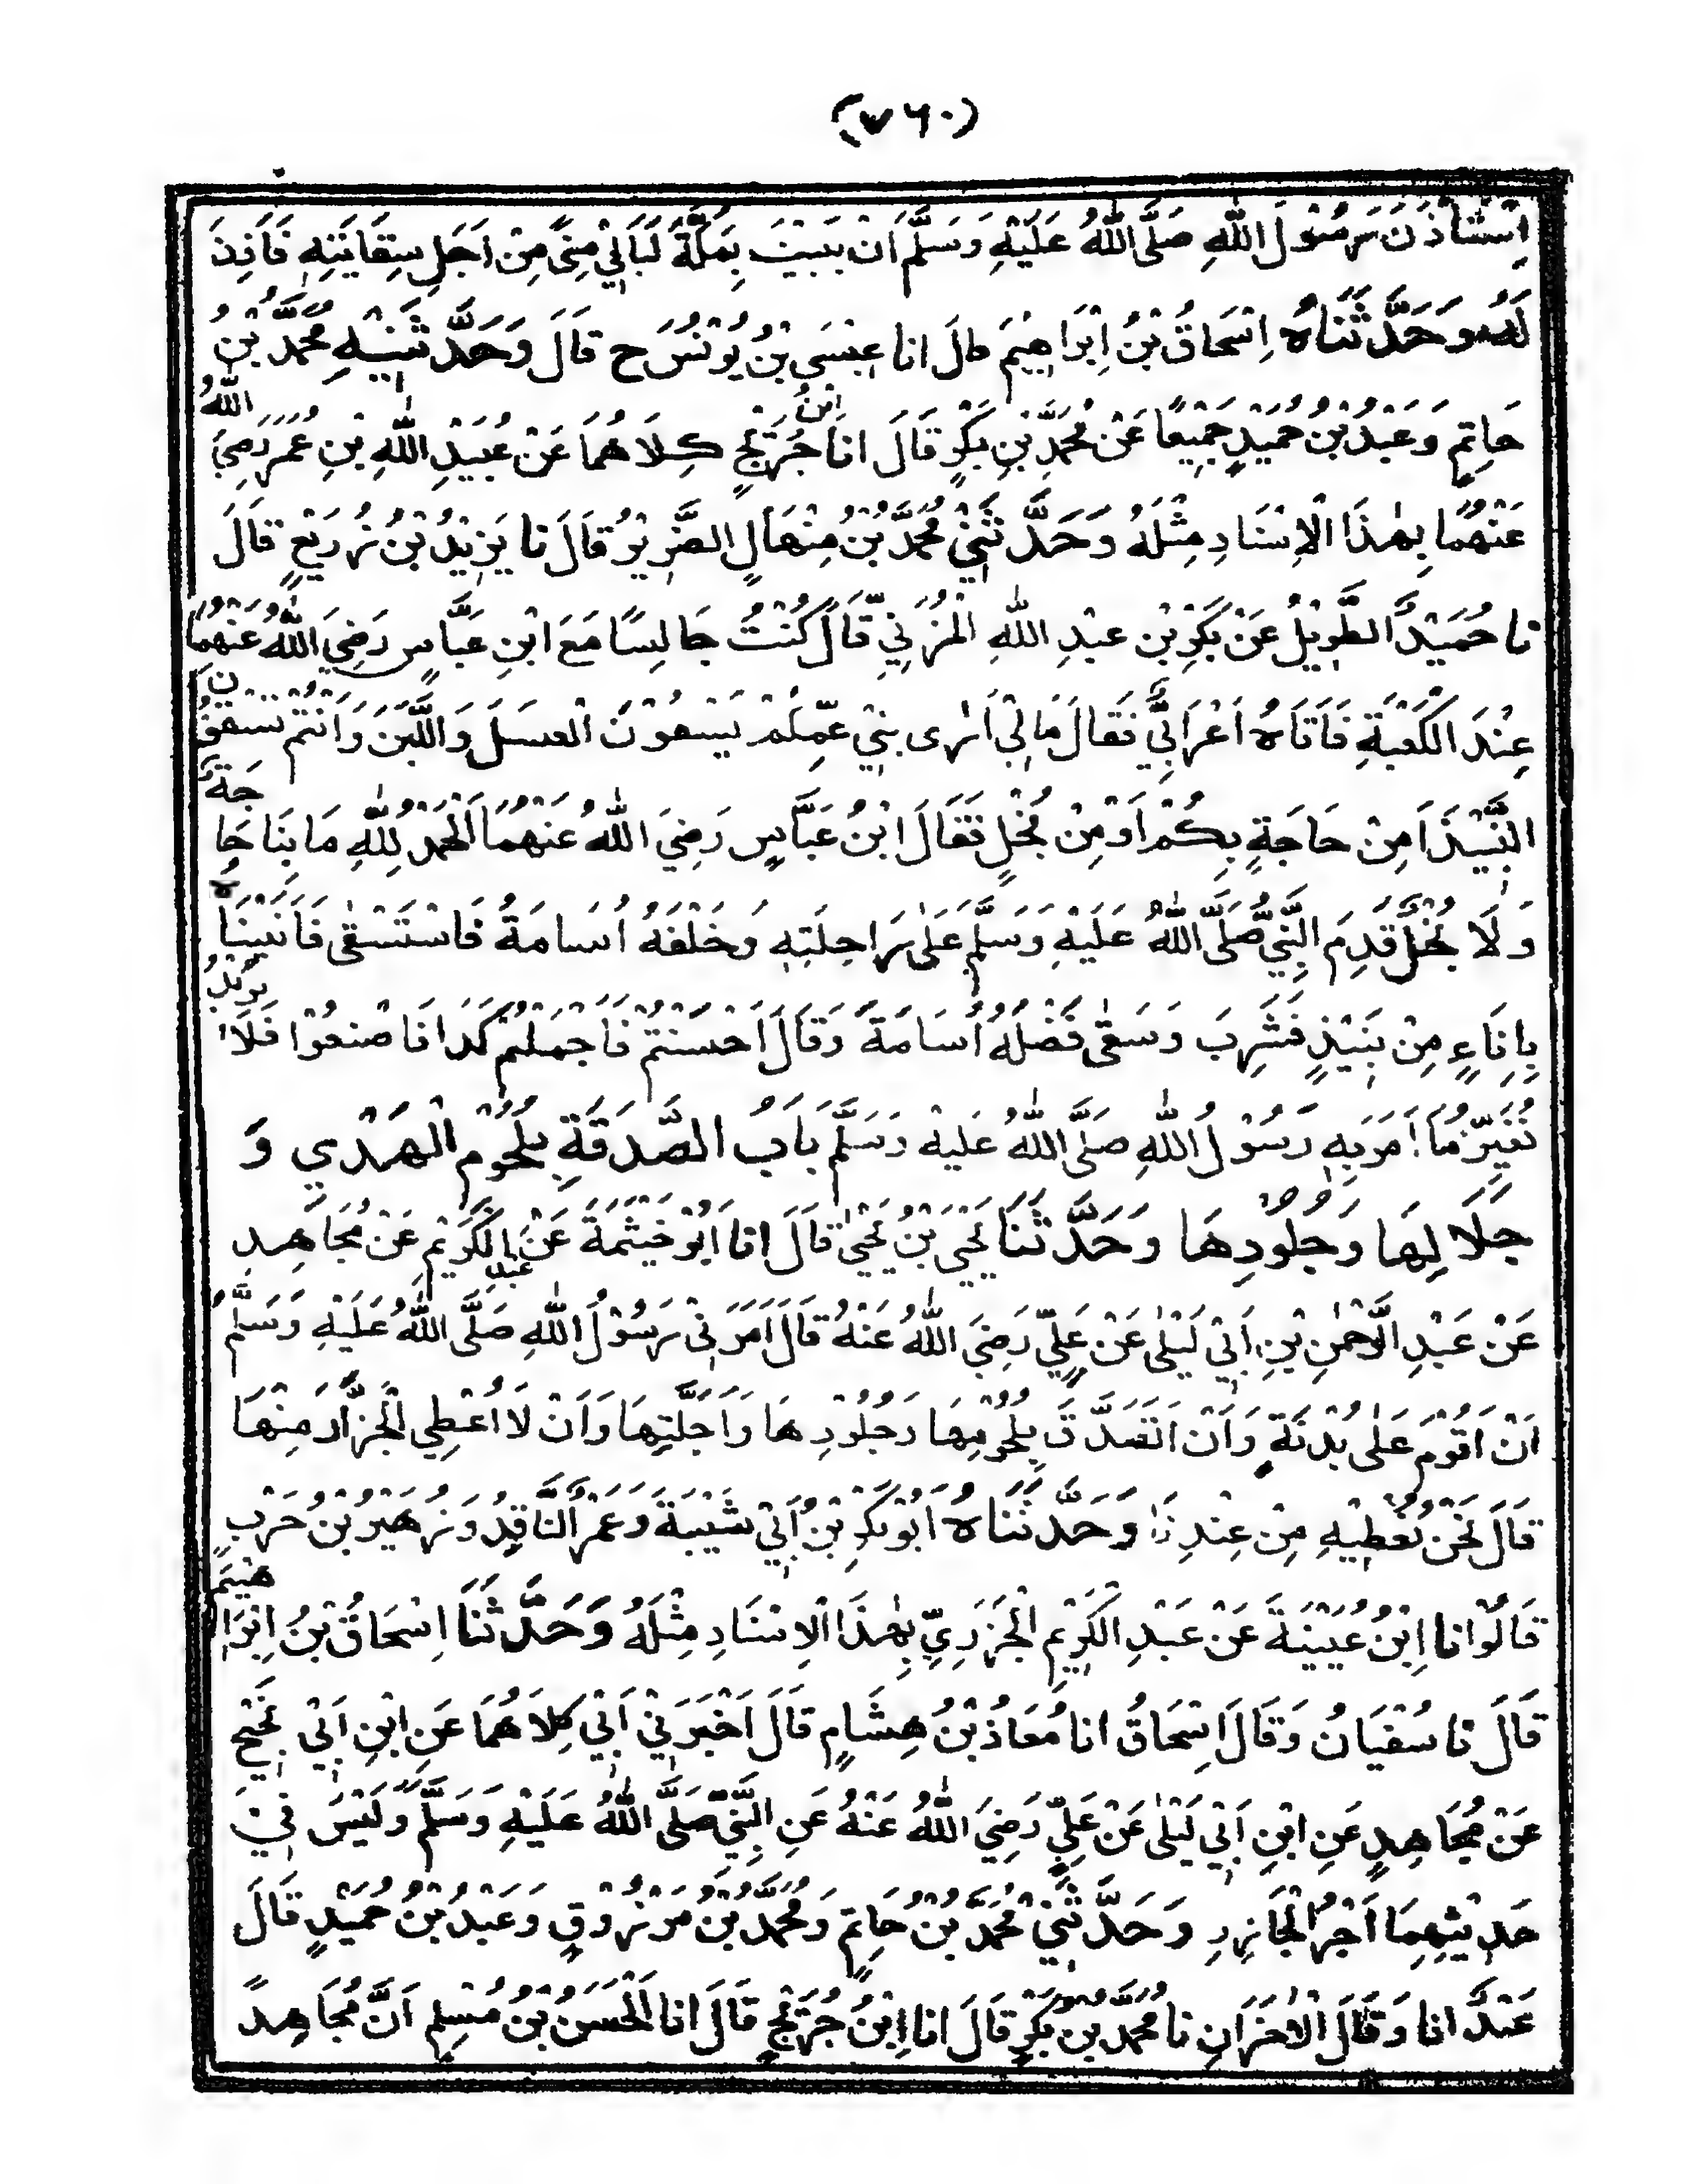 (٧٦٠)
اِسْتَأْذَنَ رَسُوْلَ اللّٰهِ صَلَّى اللّٰهُ عَلَيْهِ وَسَلَّمَ اَنْ يَبِيْتَ بِمَكَّةَ لَيَالِيْ مِنًى مِنْ اَجَلِ سِقَايَتِهٖ فَاَذِنَ
لَهُ وَحَدَّثَنَاهُ اِسْحَاقُ بْنُ اِبْرَاهِيْمَ قَالَ انا عِيْسَى بْنُ يُوْنُسَ ح قَالَ وَحَدَّثَنِيْهِ مُحَمَّدُ بْنُ
حَاتِمٍ وَعَبْدُ بْنُ حُمَيْدٍ جَمِيْعًا عَنْ مُحَمَّدِ بْنِ بَكْرٍ قَالَ انا ابْنُ جُرَيْجٍ كِلَاهُمَا عَنْ عُبَيْدِ اللّٰهِ بْنِ عُمَرَ رَضِيَ اللّٰهُ
عَنْهُمَا بِهٰذَا الْاِسْنَادِ مِثْلَهُ وَحَدَّثَنِيْ مُحَمَّدُ بْنُ مِنْهَالٍ الضَّرِيْرُ قَالَ نا يَزِيْدُ بْنُ زُرَيْعٍ قَالَ
نا حُمَيْدٌ الطَّوِيْلُ عَنْ بَكْرِ بْنِ عَبْدِ اللّٰهِ الْمُزَنِيِّ قَالَ كُنْتُ جَالِسًا مَعَ ابْنِ عَبَّاسٍ رَضِيَ اللّٰهُ عَنْهُمَا
عِنْدَ الْكَعْبَةِ فَاَتَاهُ اَعْرَابِيٌّ فَقَالَ مَا لِيْ اَرٰى بَنِيْ عَمِّكُمْ يَسْقُوْنَ الْعَسَلَ وَاللَّبَنَ وَاَنْتُمْ تَسْقُوْنَ
النَّبِيْذَ اَمِنْ حَاجَةٍ بِكُمْ اَوْ مِنْ بُخْلٍ فَقَالَ ابْنُ عَبَّاسٍ رَضِيَ اللّٰهُ عَنْهُمَا اَلْحَمْدُ لِلّٰهِ مَا بِنَا حَاجَةٌ
وَلَا بُخْلٌ قَدِمَ النَّبِيُّ صَلَّى اللّٰهُ عَلَيْهِ وَسَلَّمَ عَلٰى رَاحِلَتِهٖ وَخَلْفَهُ اُسَامَةُ فَاسْتَسْقٰى فَاَتَيْنَاهُ
بِاِنَاءٍ مِنْ نَبِيْذٍ فَشَرِبَ وَسَقٰى فَضْلَهُ اُسَامَةَ وَقَالَ اَحْسَنْتُمْ فَاَجْمَلْتُمْ كَذَا فَاصْنَعُوْا فَلَا نُرِيْدُ
نُغَيِّرُ مَا اَمَرَ بِهٖ رَسُوْلُ اللّٰهِ صَلَّى اللّٰهُ عَلَيْهِ وَسَلَّمَ بَابُ الصَّدَقَةِ بِلُحُوْمِ الْهَدْيِ وَ
جَلَالِهَا وَجُلُوْدِهَا وَحَدَّثَنَا يَحْيَى بْنُ يَحْيٰى قَالَ انا اَبُوْ خَيْثَمَةَ عَنْ عَبْدِ الْكَرِيْمِ عَنْ مُجَاهِدٍ
عَنْ عَبْدِ الرَّحْمٰنِ بْنِ اَبِيْ لَيْلٰى عَنْ عَلِيٍّ رَضِيَ اللّٰهُ عَنْهُ قَالَ اَمَرَنِيْ رَسُوْلُ اللّٰهِ صَلَّى اللّٰهُ عَلَيْهِ وَسَلَّمَ
اَنْ اَقُوْمَ عَلٰى بُدْنِهٖ وَاَنْ اَتَصَدَّقَ بِلُحُوْمِهَا وَجُلُوْدِهَا وَاَجِلَّتِهَا وَاَنْ لَا اُعْطِيَ الْجَزَّارَ مِنْهَا
قَالَ نَحْنُ نُعْطِيْهِ مِنْ عِنْدِنَا وَحَدَّثَنَاهُ اَبُوْ بَكْرِ بْنُ اَبِيْ شَيْبَةَ وَعَمْرٌو النَّاقِدُ وَزُهَيْرُ بْنُ حَرْبٍ
قَالُوْا نا ابْنُ عُيَيْنَةَ عَنْ عَبْدِ الْكَرِيْمِ الْجَزَرِيِّ بِهٰذَا الْاِسْنَادِ مِثْلَهُ وَحَدَّثَنَا اِسْحَاقُ بْنُ اِبْرَاهِيْمَ
قَالَ نا سُفْيَانُ وَقَالَ اِسْحَاقُ انا مُعَاذُ بْنُ هِشَامٍ قَالَ اَخْبَرَنِيْ اَبِيْ كِلَاهُمَا عَنِ ابْنِ اَبِيْ نَجِيْحٍ
عَنْ مُجَاهِدٍ عَنِ ابْنِ اَبِيْ لَيْلٰى عَنْ عَلِيٍّ رَضِيَ اللّٰهُ عَنْهُ عَنِ النَّبِيِّ صَلَّى اللّٰهُ عَلَيْهِ وَسَلَّمَ وَلَيْسَ فِيْ
حَدِيْثِهِمَا اَجْرُ الْجَازِرِ وَحَدَّثَنِيْ مُحَمَّدُ بْنُ حَاتِمٍ وَمُحَمَّدُ بْنُ مَرْزُوْقٍ وَعَبْدُ بْنُ حُمَيْدٍ قَالَ
عَبْدٌ انا وَقَالَ الْاٰخَرَانِ نا مُحَمَّدُ بْنُ بَكْرٍ قَالَ انا ابْنُ جُرَيْجٍ قَالَ انا الْحَسَنُ بْنُ مُسْلِمٍ اَنَّ مُجَاهِدًا